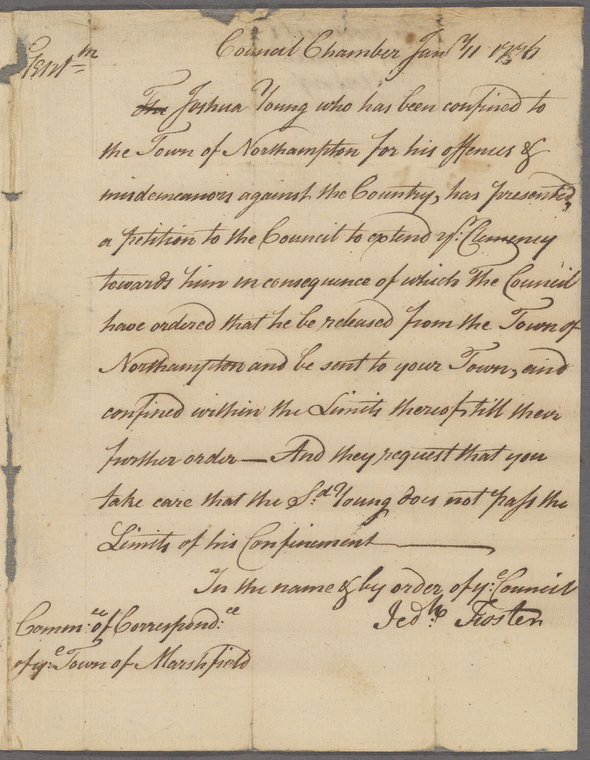 Gentm
Council Chamber Jany 11 1776
The Joshua Young who has been confined to
the Town of Northampton for his offences &
misdemeanors against the Country, has presented,
a petition to the Council to extend yr. Clemency
towards him in consequence of which the Council
have ordered that he be released from the Town of
Northampton and be sent to your Town, and
confined within the Limits thereof, till their
further order — And they request that you
take care that the Sd. Young does not pass the
Limits of his Confinement ———
In the name & by order, of ye: Council
Jedh. Foster
Commee: of Correspondee:
of ye: Town of Marshfield